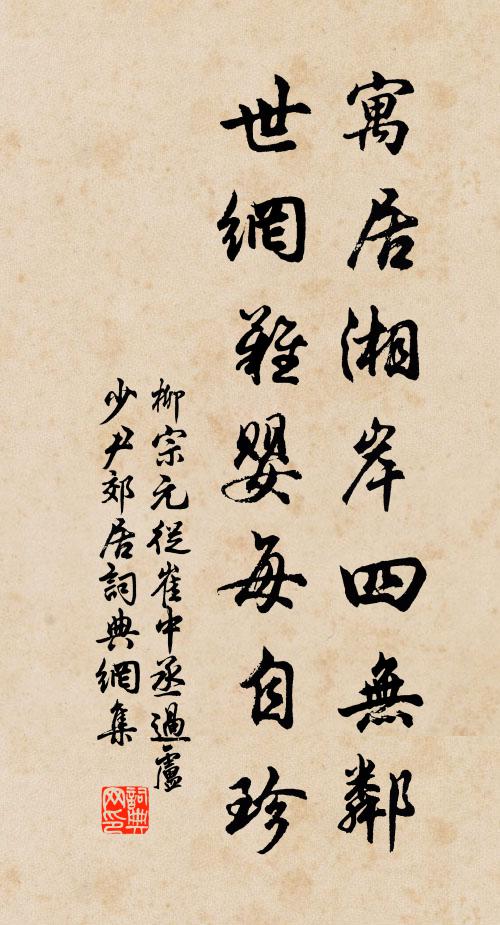 寓居湘岸四無鄰
世網難嬰每自珍
柳宗元從崔中丞過盧
少尹郊居詞典網集
詞典網印